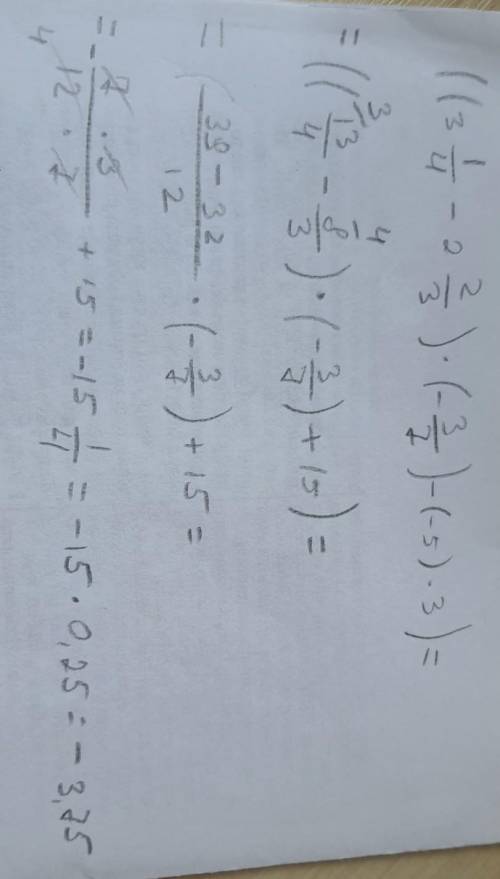 ((3 1/4 - 2 2/3) · (-3/7) - (-5) · 3) =
= ((13/4 - 8/3) · (-3/7) + 15) =
= (39 - 32)/12 · (-3/7) + 15 =
= - (7 · 3)/(12 · 7) + 15 = -15 1/4 = -15 · 0,25 = -3,75